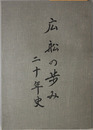 広船の歩み
二十年史